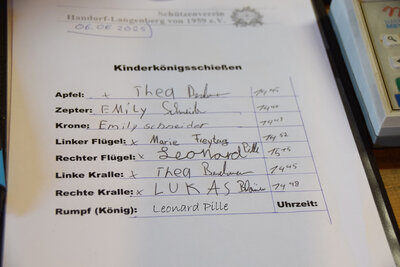 Schützenverein
Handorf-Langenberg von 1959 e.V.
06.06.2025
Kinderkönigsschießen
Apfel: x Thea
Zepter: x EMILY Schneider
Krone: x Emily schneider
Linker Flügel: x Marie Freytag 14 52
Rechter Flügel: x Leonard Pille
Linke Kralle: x Thea 14 45
Rechte Kralle: x LUKAS 14 48
Rumpf (König): Leonard Pille Uhrzeit: